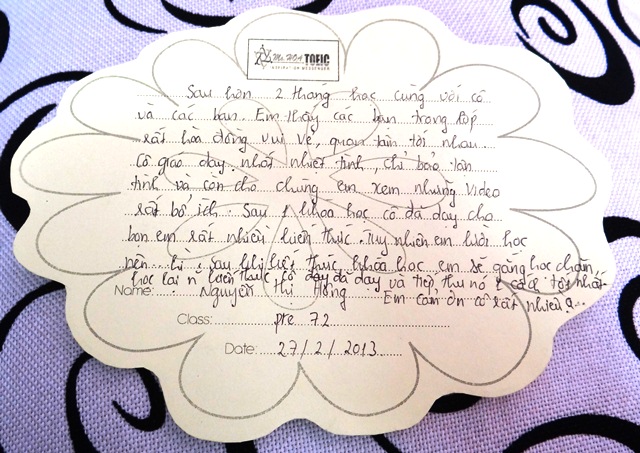 Ms HOA TOEIC
Sau hơn 2 tháng học cùng với cô
và các bạn. Em thấy các bạn trong lớp
rất hòa đồng vui vẻ, quan tâm tới nhau.
Cô giáo dạy nhất nhiệt tình, chỉ bảo tận
tình và còn cho chúng em xem những video
rất bổ ích. Sau 1 khóa học cô đã dạy cho
bọn em rất nhiều kiến thức. Tuy nhiên em lười học
nên... hi; sau khi kết thúc khóa học em sẽ gắng học chăm,
học lại n~ kiến thức cô dạy đã dạy và tiếp thu nó 1 cách tốt nhất.
Em cảm ơn cô rất nhiều ạ...
Name: Nguyễn Thị Hồng
Class: pre 72
Date: 27/2/2013